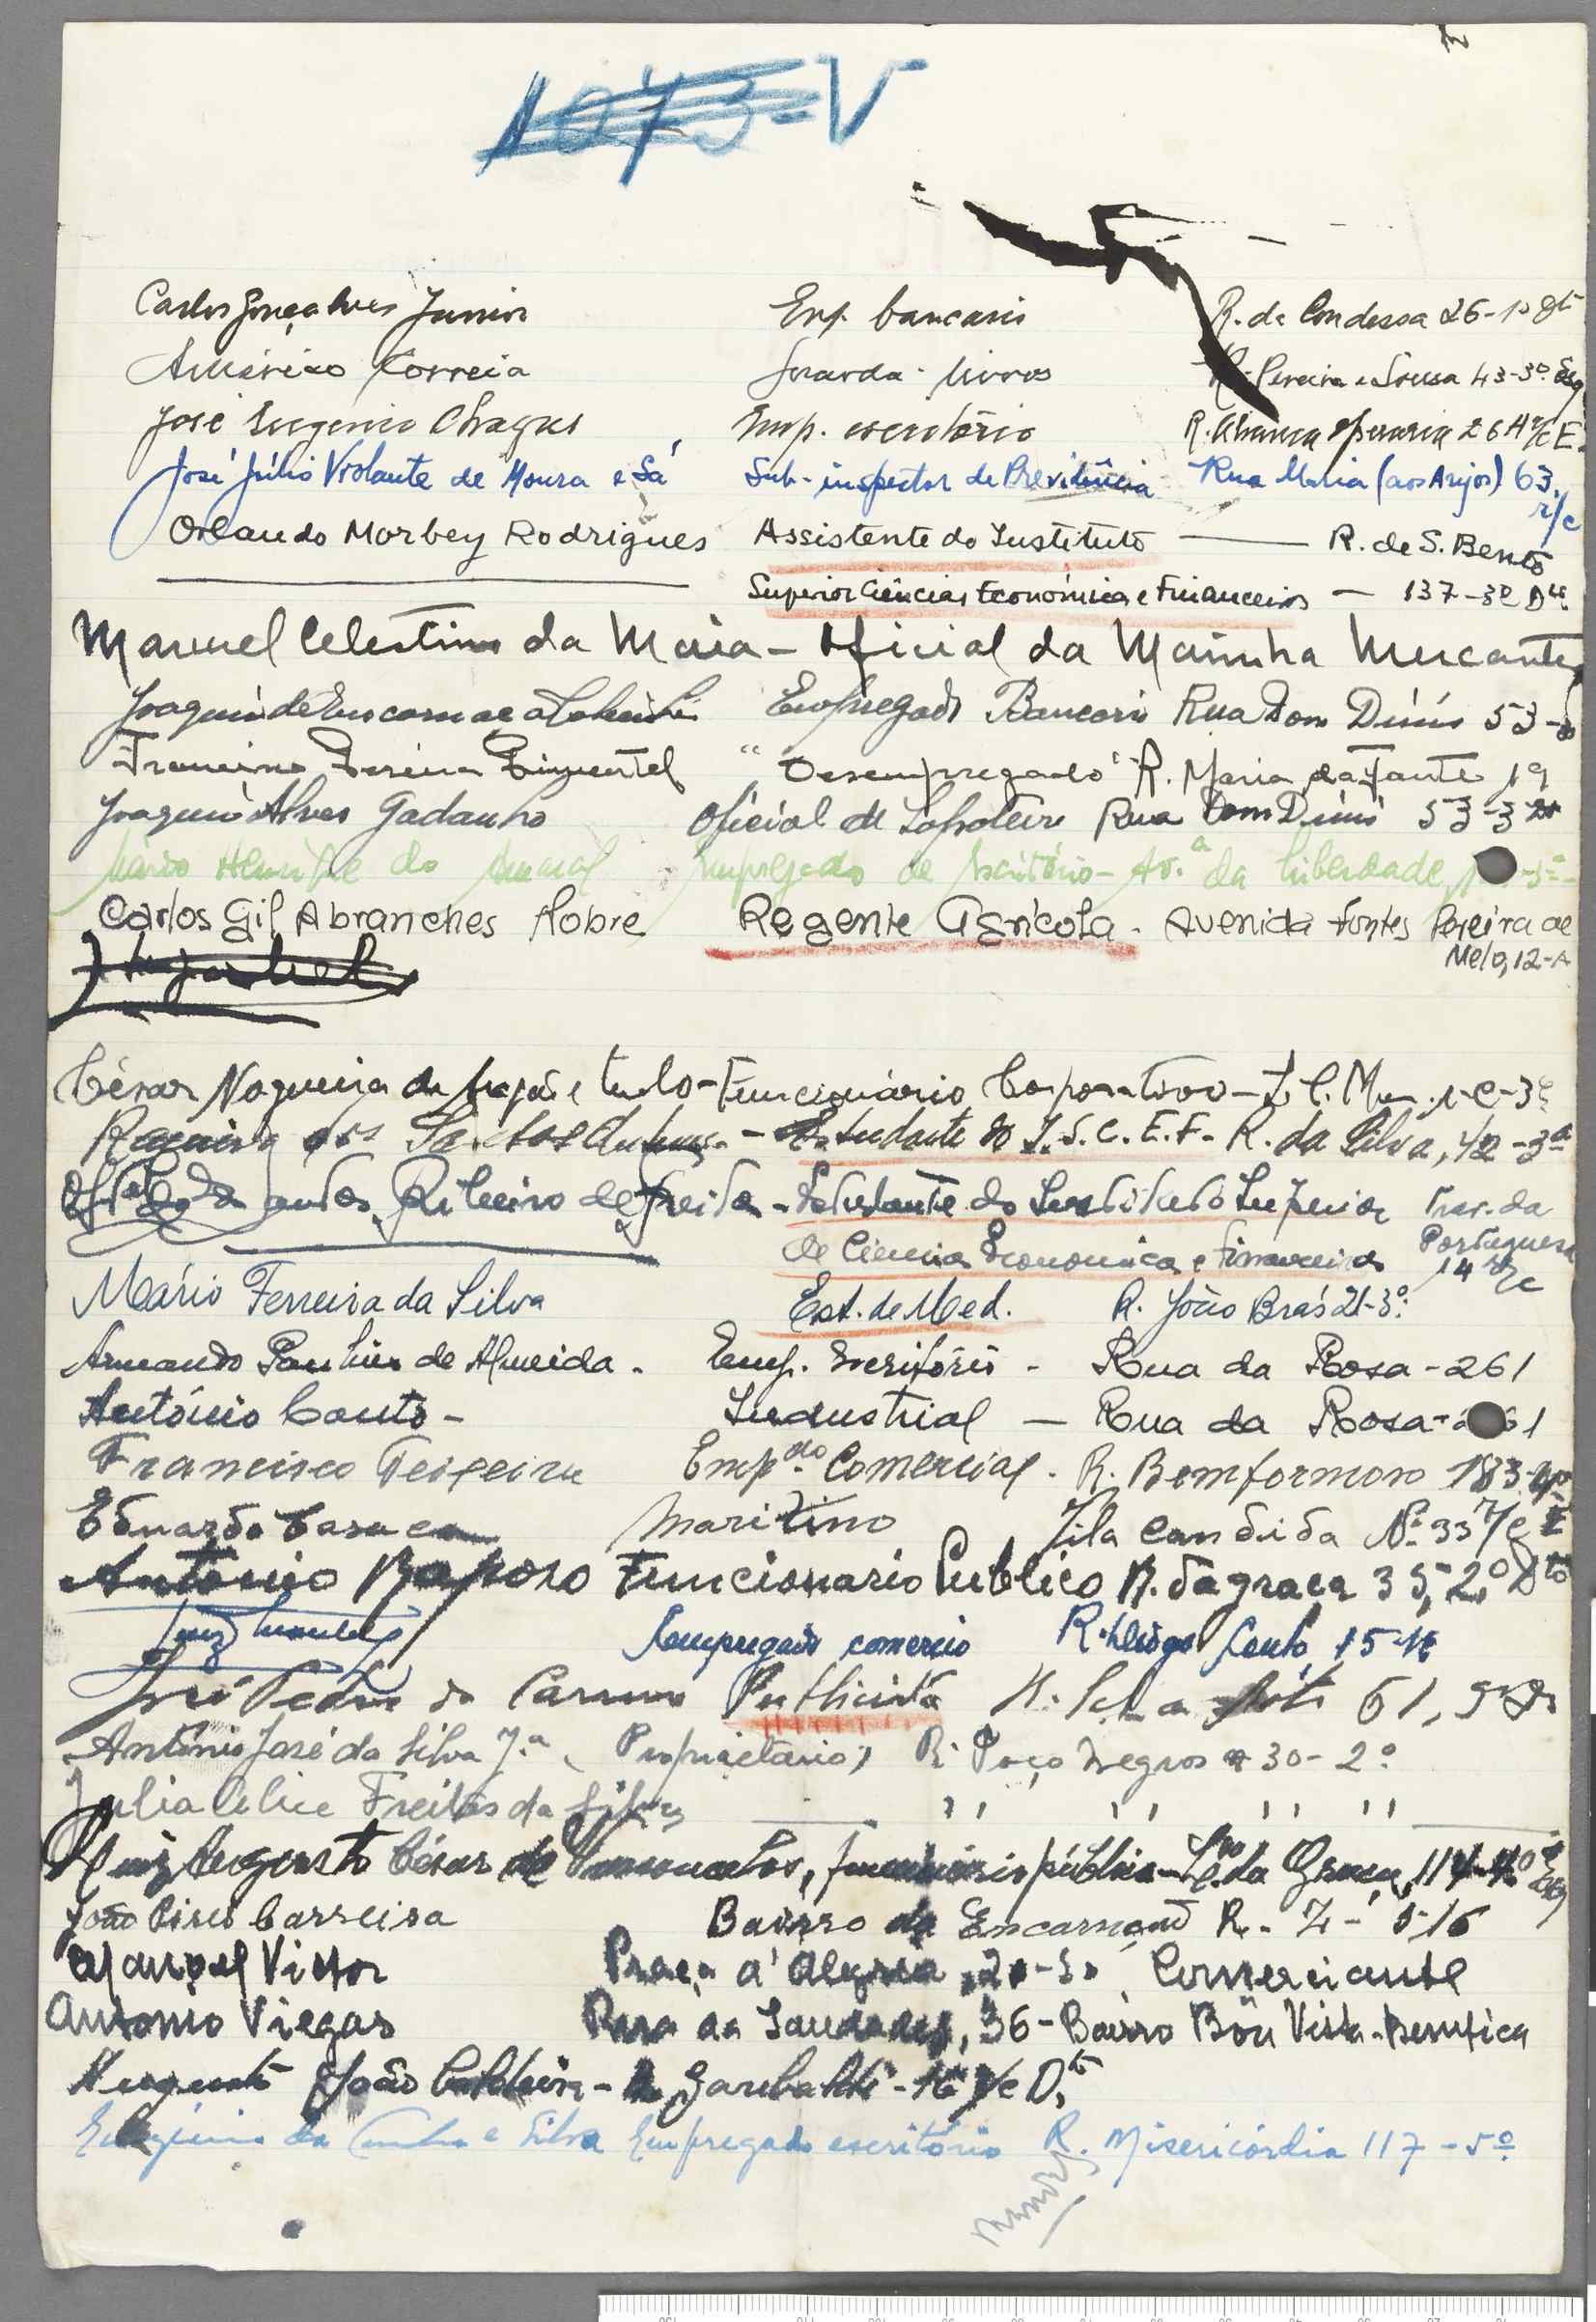 1073-V
Carlos Gonçalves Junior Emp. bancario R. da Condessa 26-1º
Américo Correia Guarda-livros R. Pereira e Sousa 43-3º Esq
José Eugenio Chagas Emp. escritório R. Aliança Operaria 26 A r/c E.
José Júlio Violante de Moura e Sá Sub-inspector de Previdência Rua Maria (aos Anjos) 63, r/c
Orlando Morbey Rodrigues Assistente do Instituto — R. de S. Bento
Superior Ciências Económicas e Financeiras — 137-3º Dto.
Manuel Celestino da Maia - Oficial da Marinha Mercante
Joaquim de Encarnação Empregado Bancario Rua Dom Dinis 53-
Francisco Pereira Pimentel " Desempregado R. Maria da Fonte 19
Joaquim Alves Gadanho Oficial de Sapateiro Rua Dom Dinis 53-3º
Mário Henrique do Amaral Empregado de Escritório - Av.ª da Liberdade,
Carlos Gil Abranches Nobre Regente Agrícola - Avenida Fontes Pereira de
Melo, 12-A
César Nogueira de - Funcionário Corporativo -
dos Santos - Estudante do I.S.C.E.F. - R. da Silva, 42-3º
dos Santos Ribeiro de Freitas - Estudante do Instituto Superior Trav. da
de Ciencias Economicas e Financeiras Portuguesa
14 r/c
Mário Ferreira da Silva Est. de Med. R. João Brás 21-3º
Armando Paulino de Almeida - Emp. Escritório - Rua da Rosa - 261
António Couto - Industrial — Rua da Rosa - 261
Francisco Teixeira Empdo. Comercial - R. Bemformoso 183-4º
Eduardo Casaca Maritimo Vila Candida Nº 33 r/c E
António Raposo Funcionario Publico R. da graça 35, 2º Dto
Empregado comercio R. Diogo Couto 15
José Pedro do Carmo Publicista 61,
António José da Silva J.or, Proprietario, R. Poço Negros 30-2º
Julia Alice Freitas da Silva — " " " "
Luiz Augusto César de Vasconcelos, funcionário público - da Graça, 114-4º Esq
João Pires Carreira Bairro da Encarnação R. 5-16
Manuel Victor Praça d'Alegria, Comerciante
Antonio Viegas Rua da Saudade, 36 - Bairro Bôa Vista - Bemfica
Augusto João Caldeira - R. Garibaldi - 16 r/c D.to
da Cunha e Silva Empregado escritório R. Misericórdia 117-5º